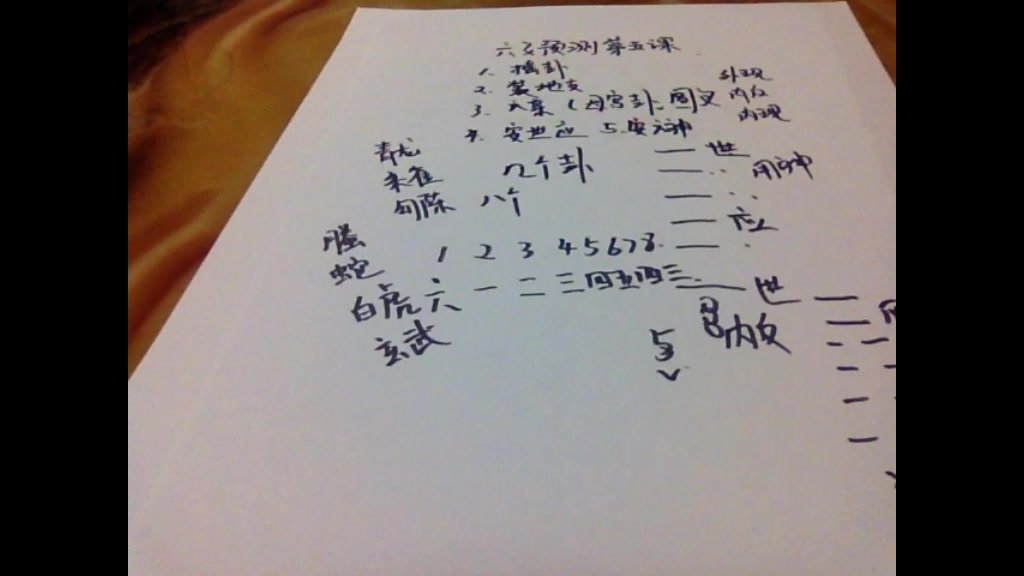 六爻预测第五课
1. 摇卦
2. 装地支
3. 六亲(母宫卦:
外观
内反
内观
4. 安世应 5.安六神
青龙
朱雀
勾陈
螣
蛇
白虎
玄武
几个卦
八个
1 2 3 4 5 6 7 8
六 一 二 三 四 五 四 三
世
用神
应
世
内反
5